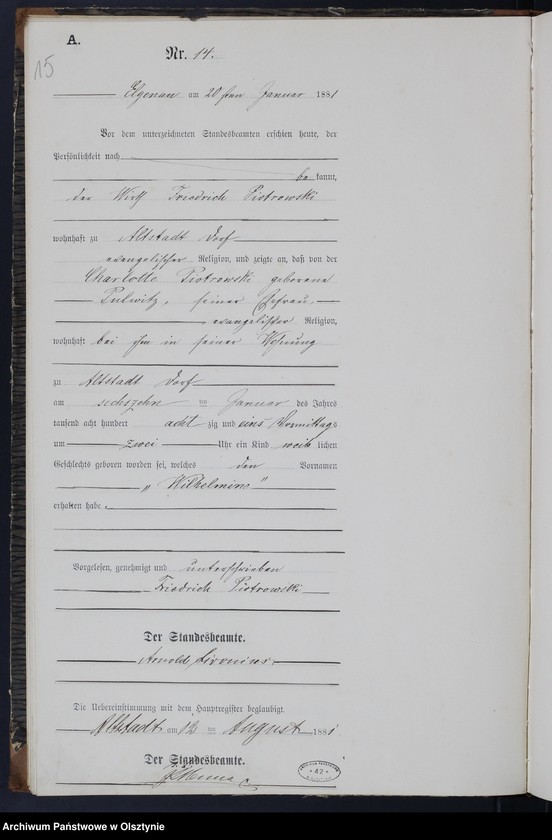 A.
15
Nr. 14.
Elgenau am 20 ten Januar 1881
Vor dem unterzeichneten Standesbeamten erschien heute, der
Persönlichkeit nach
be kannt,
der Wirth Friedrich Piotrowski
wohnhaft zu Altstadt Dorf
evangelischer Religion, und zeigte an, daß von der
Charlotte Piotrowski geborene
Pulwitz, seiner Ehefrau,
evangelischer Religion,
wohnhaft bei ihm in seiner Wohnung
zu Altstadt Dorf
am sechszehn ten Januar des Jahres
tausend acht hundert acht zig und eins Vormittags
um zwei Uhr ein Kind weib lichen
Geschlechts geboren worden sei, welches den Vornamen
„ Wilhelmine "
erhalten habe.
Vorgelesen, genehmigt und unterschrieben
Friedrich Piotrowski
Der Standesbeamte.
Arnold
Die Uebereinstimmung mit dem Hauptregister beglaubigt.
Altstadt am 12 ten August 1881
Der Standesbeamte.
42
Archiwum Państwowe w Olsztynie